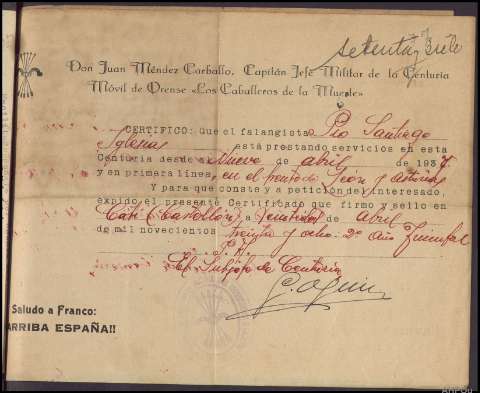 setenta y siete
Don Juan Méndez Carballo, Capitán Jefe Militar de la Centuria
Móvil de Orense «Los Caballeros de la Muerte»
CERTIFICO: Que el falangista Pío Santiago
Iglesias está prestando servicios en esta
Centuria desde el Nueve de abril de 1937.
y en primera línea, en el frente de León y Asturias
Y para que conste y a petición del interesado,
expido el presente Certificado que firmo y sello en
Catí (Castellón) a de abril
de mil novecientos treinta y ocho. 2º Año Triunfal
El Subjefe de Centuria
Saludo a Franco:
ARRIBA ESPAÑA!!